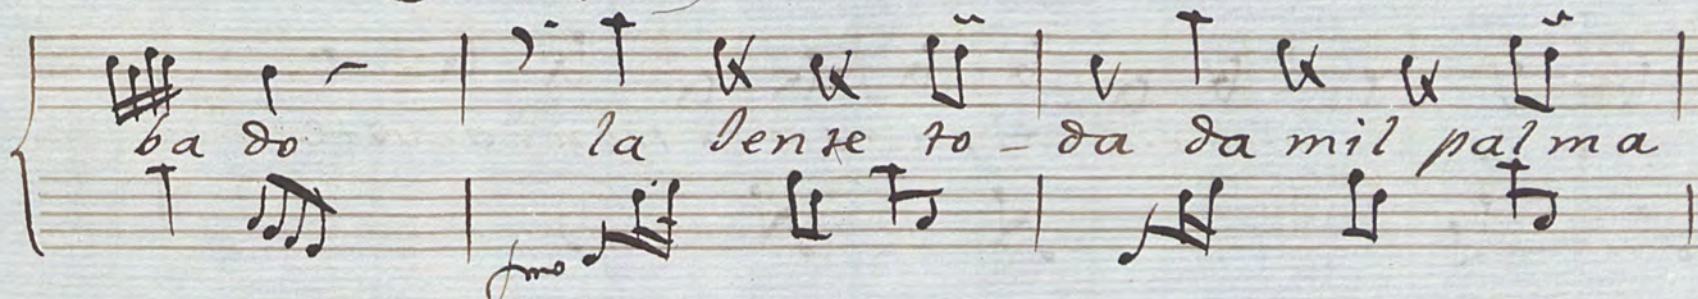 ba do la Jente to - da da mil palma
fmo